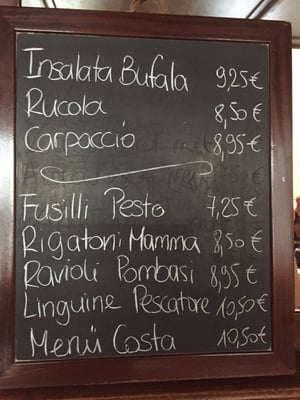 Insalata Bufala 9,25€
Rucola 8,50€
Carpaccio 8,95€
Fusilli Pesto 7,25€
Rigatoni Mamma 8,50€
Ravioli Pombasi 8,95€
Linguine Pescatore 10,50€
Menü Costa 10,50€